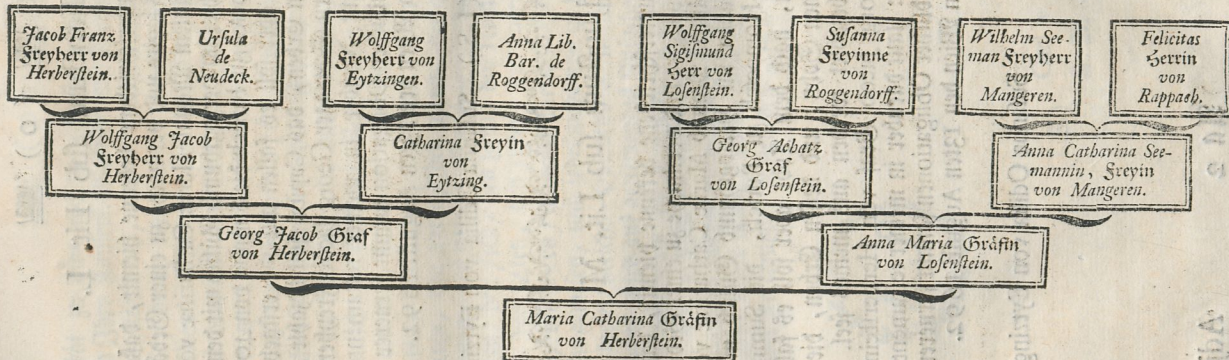 Jacob Franz
Freyherr von
Herberstein.
Ursula
de
Neudeck.
Wolffgang
Freyherr von
Eytzingen.
Anna Lib.
Bar. de
Roggendorff.
Wolffgang
Sigismund
Herr von
Losenstein.
Susanna
Freyinne
von
Roggendorff.
Wilhelm See-
man Freyherr
von
Mangeren.
Felicitas
Herrin
von
Rappach.
Wolffgang Jacob
Freyherr von
Herberstein.
Catharina Freyin
von
Eytzing.
Georg Achatz
Graf
von Losenstein.
Anna Catharina See-
mannin, Freyin
von Mangeren.
Georg Jacob Graf
von Herberstein.
Anna Maria Gräfin
von Losenstein.
Maria Catharina Gräfin
von Herberstein.